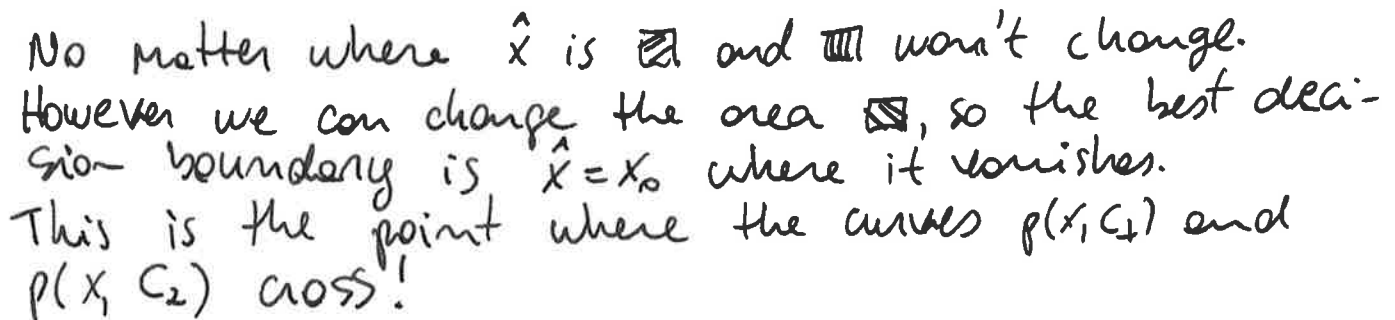 No matter where x̂ is ▨ and ▥ won't change.
However we can change the area ▧, so the best deci-
sion boundary is x̂ = x₀ where it vanishes.
This is the point where the curves p(x, C₁) and
p(x, C₂) cross!